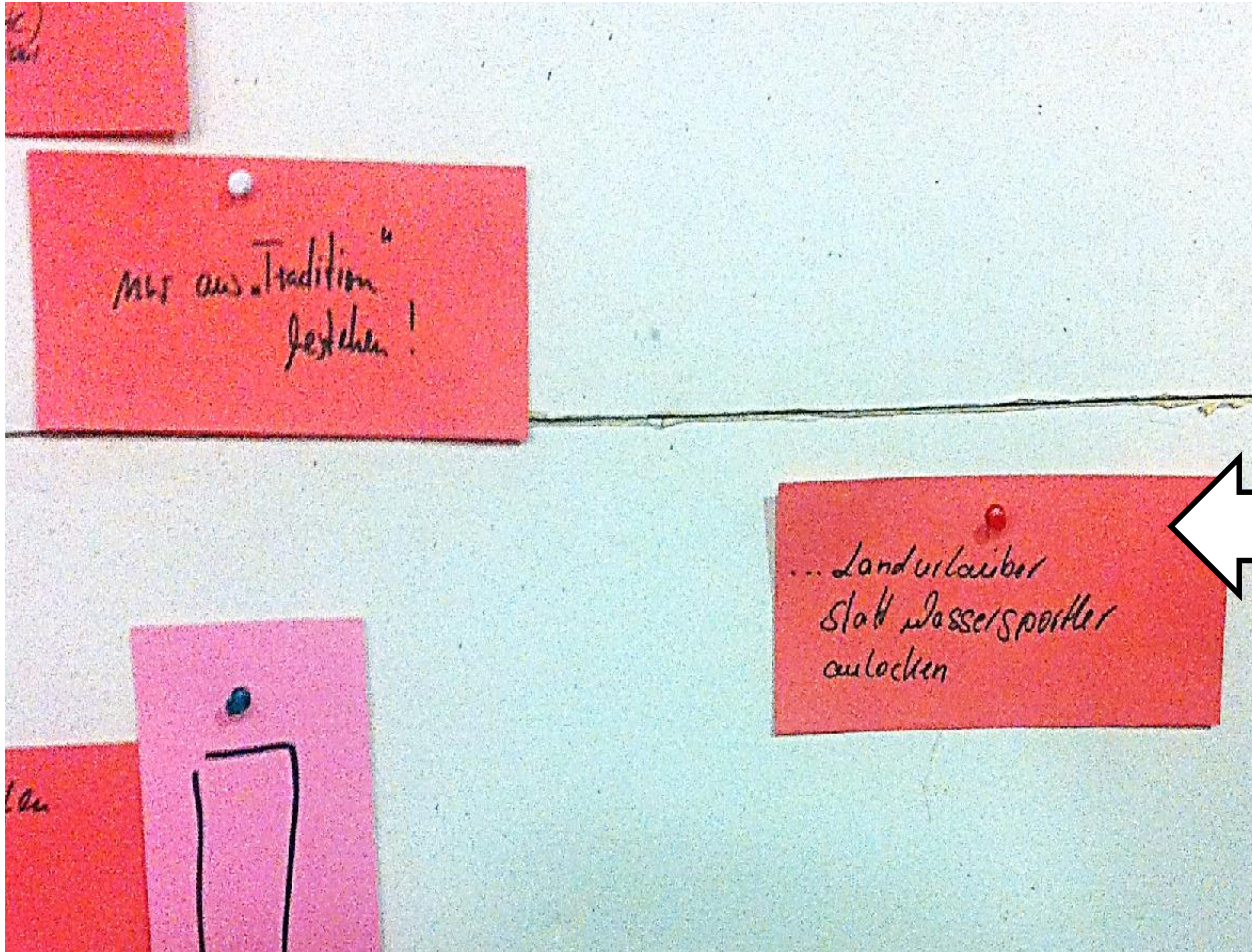 nur aus „Tradition“
bestehen!
... Landurlauber
statt Wassersportler
anlocken